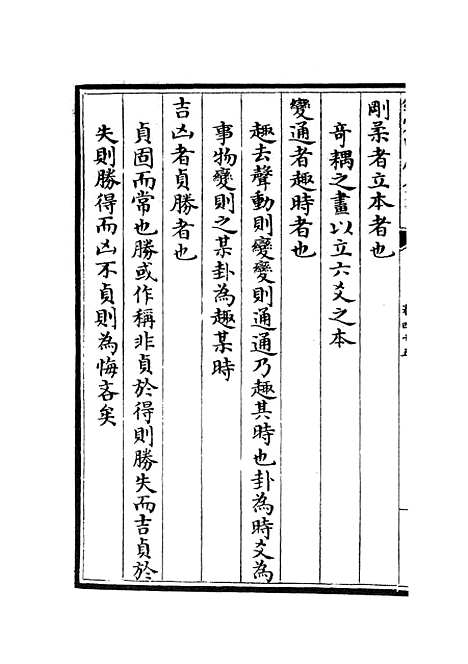 剛柔者立本者也
奇耦之畫以立六爻之本
變通者趣時者也
趣去聲動則變變則通通乃趣其時也卦為時爻為
事物變則之某卦為趣某時
吉凶者貞勝者也
貞固而常也勝或作稱非貞於得則勝失而吉貞於
失則勝得而凶不貞則為悔吝矣